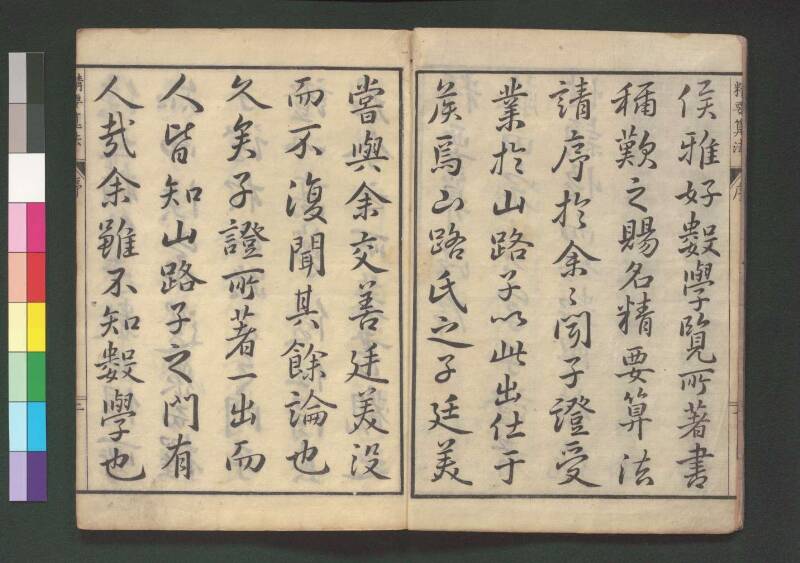 精要算法 序
侯雅好數學覽所著書
稱歎之賜名精要算法
請序於余〻聞子證受
業於山路子以此出仕于
侯焉山路氏之子廷美
嘗與余交善廷美没
而不復聞其餘論也
久矣子證所著一出而
人皆知山路子之門有
人哉余雖不知數學也
精要算法 序
二